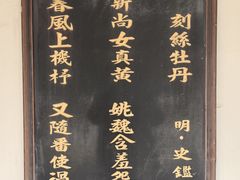 刻絲牡丹
明·史鑑
新尚女真黃
姚魏含羞怨
春風上機杼
又隨番使過